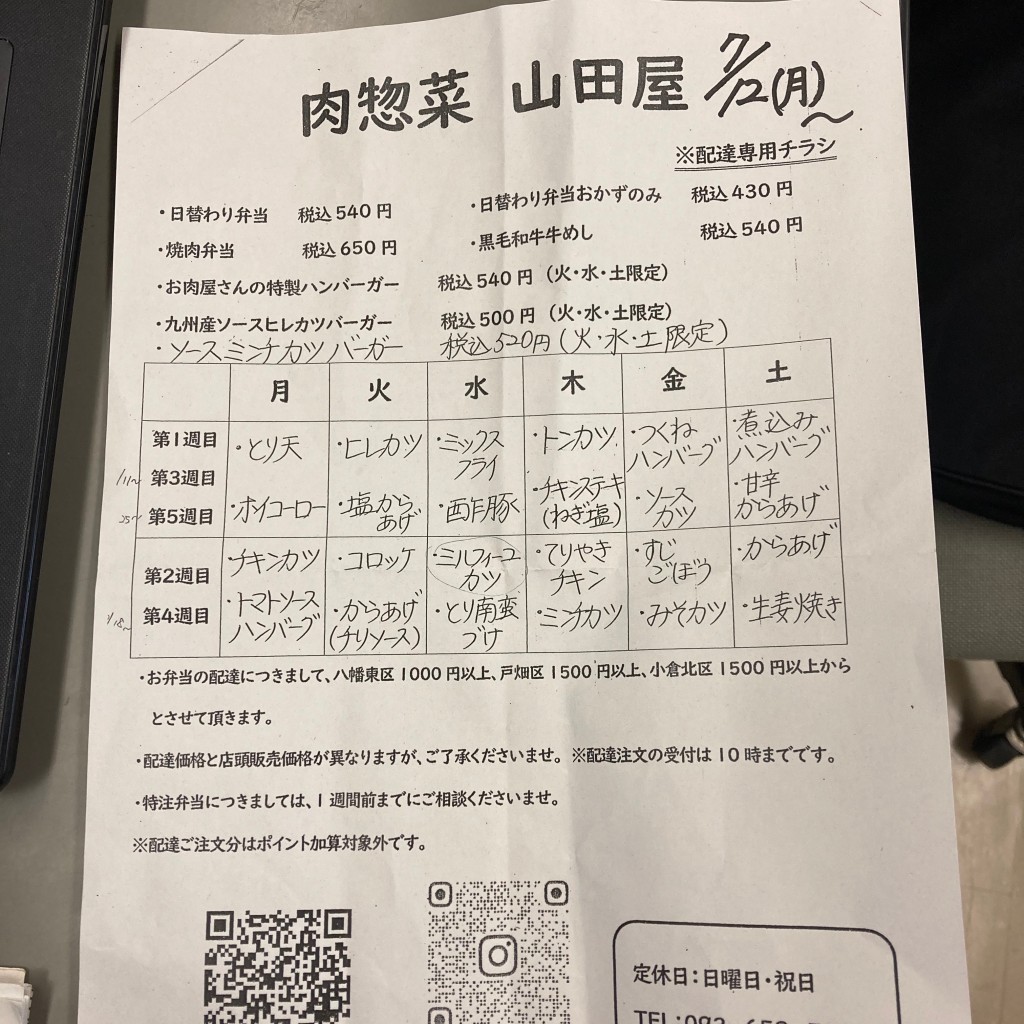 肉惣菜 山田屋 7/12(月)~
※配達専用チラシ
・日替わり弁当 税込540円 ・日替わり弁当おかずのみ 税込430円
・焼肉弁当 税込650円 ・黒毛和牛牛めし 税込540円
・お肉屋さんの特製ハンバーガー 税込540円（火・水・土限定）
・九州産ソースヒレカツバーガー 税込500円（火・水・土限定）
・ソースミンチカツバーガー 税込520円(火・水・土限定)
月 火 水 木 金 土
第1週目 ・とり天 ・ヒレカツ ・ミックスフライ ・トンカツ ・つくねハンバーグ ・煮込みハンバーグ
第3週目
第5週目 ・ホイコーロー ・塩からあげ ・酢豚 ・チキンステキ(ねぎ塩) ・ソースカツ ・甘辛からあげ
第2週目 チキンカツ ・コロッケ ・ミルフィーユカツ ・てりやきチキン ・すじごぼう ・からあげ
第4週目 ・トマトソースハンバーグ ・からあげ(チリソース) ・とり南蛮づけ ・ミンチカツ ・みそカツ ・生姜焼き
・お弁当の配達につきまして、八幡東区1000円以上、戸畑区1500円以上、小倉北区1500円以上から
とさせて頂きます。
・配達価格と店頭販売価格が異なりますが、ご了承くださいませ。※配達注文の受付は10時までです。
・特注弁当につきましては、1週間前までにご相談くださいませ。
※配達ご注文分はポイント加算対象外です。
定休日：日曜日・祝日